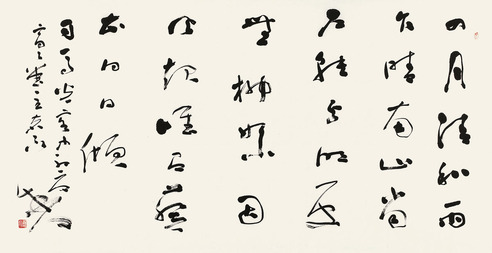 四月清和雨
乍晴南山當
户轉分明更
無柳絮因
風起唯有葵
花向日傾
司馬光客中初夏